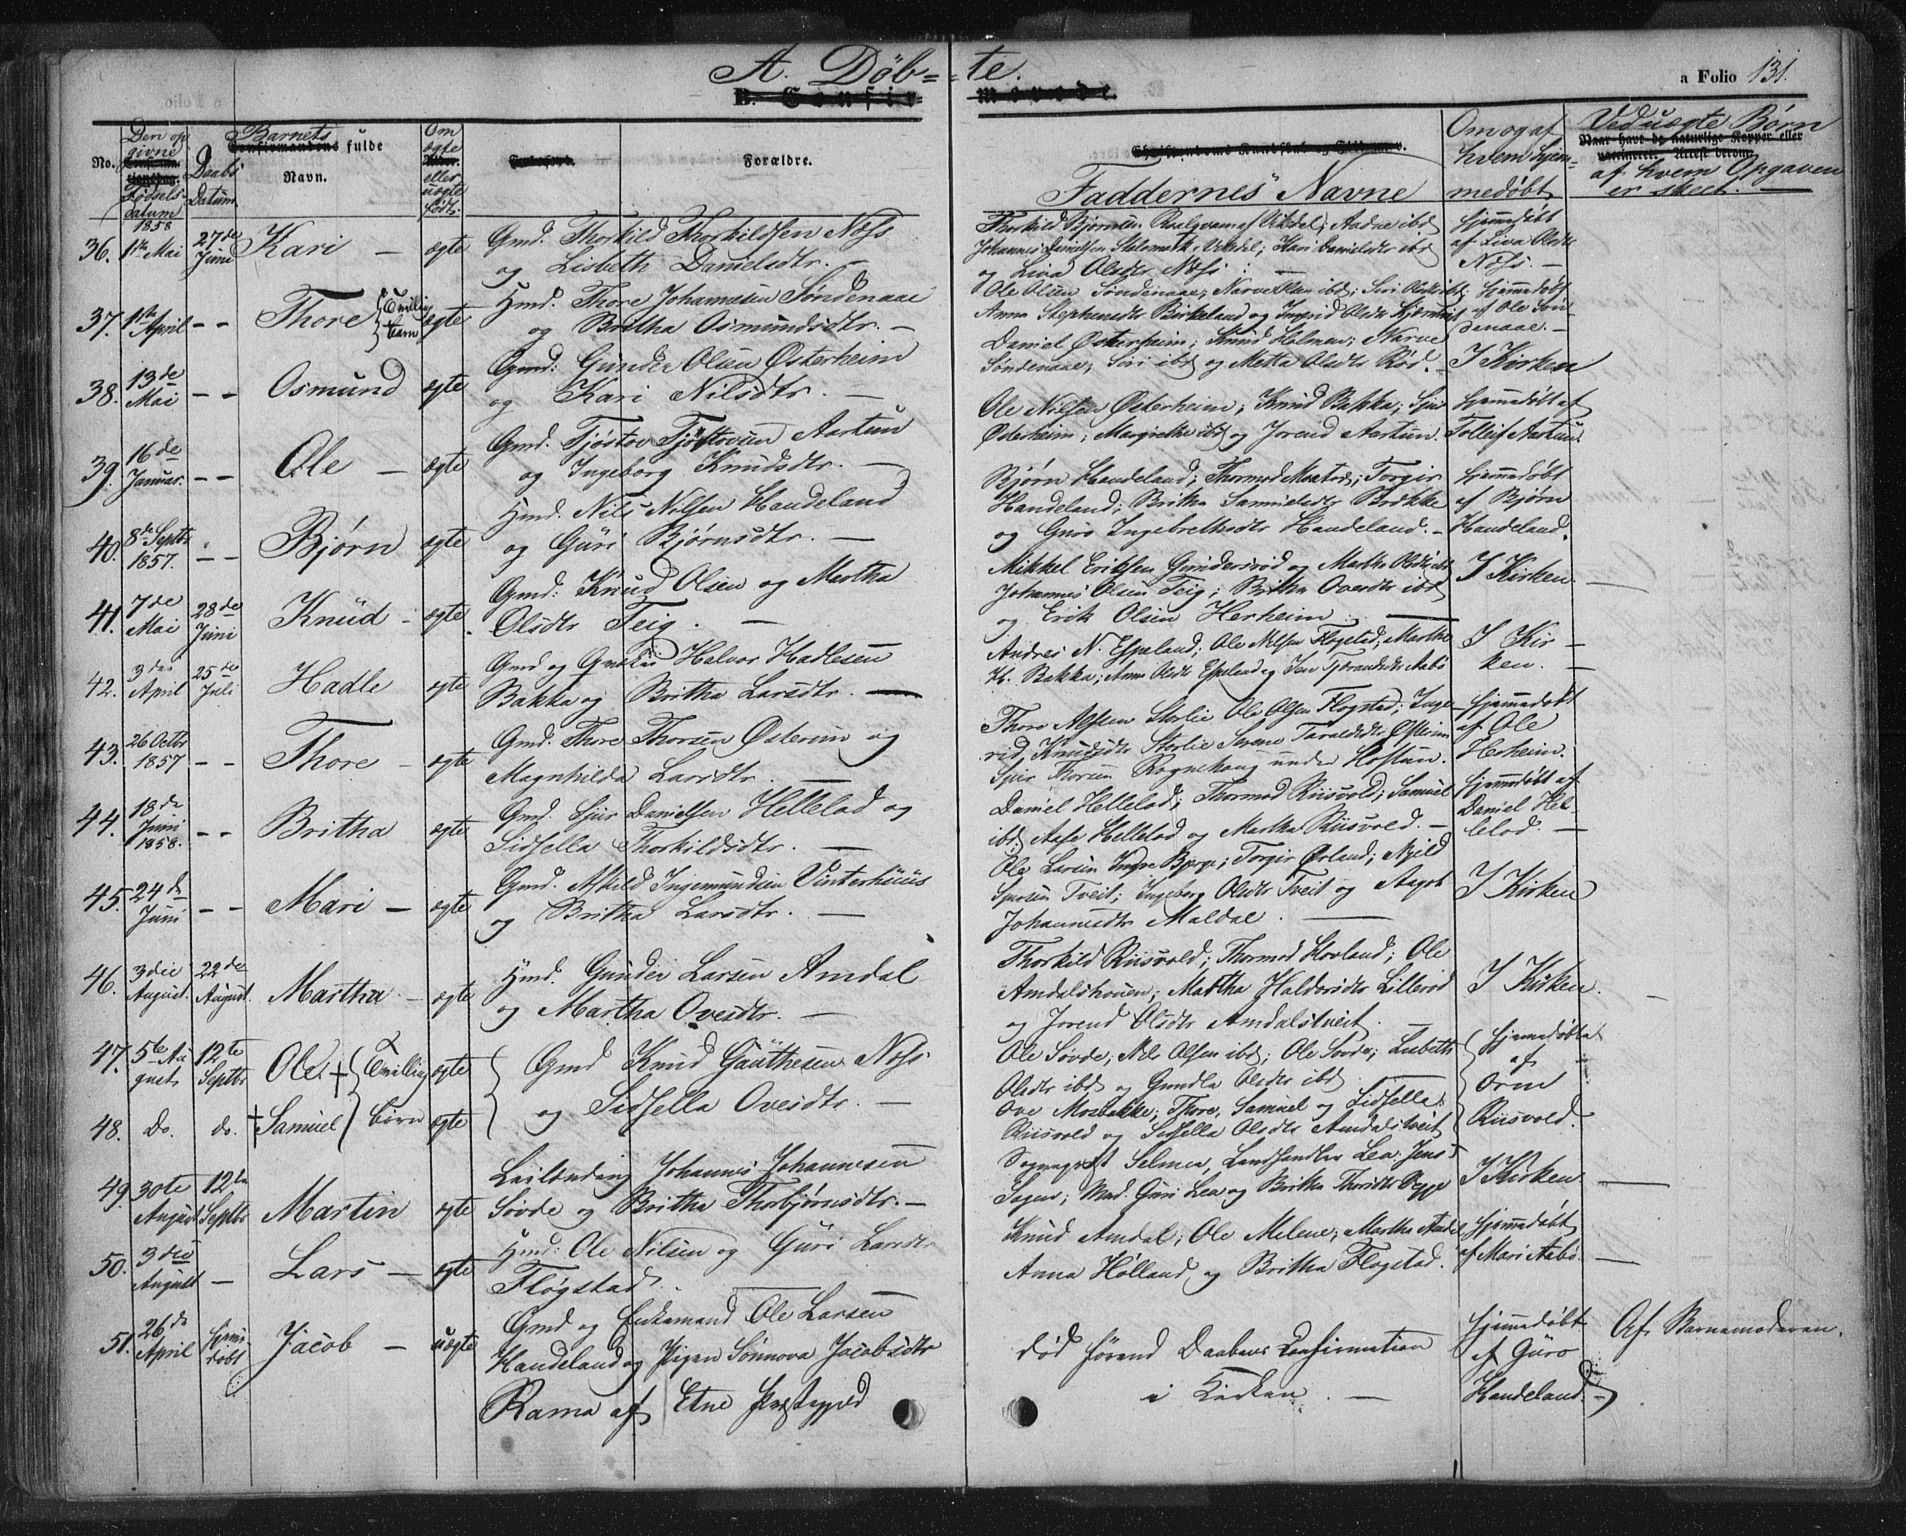 A. Døb=
=te.
B. Confir
merede.
a Folio 131.
No.
Den op
givne
Fødsels
datum
1858
Daabs
Datum.
Barnets
Confirmandens fulde
Navn.
Om
ægte
eller
uægte
født.
Forældre.
Faddernes Navne
Om og af
hvem hjem-
medøbt
Ved uægte Børn
Naar havt de naturlige Kopper eller
vaccineret. Attest derom.
af hvem Opgaven
er skeet. —
36. 1ste Mai 27de Juni Kari — ægte
Gmd. Thorkild Thorkildsen Næss
og Lisbeth Danielsdtr. —
Johannes Danielsen
og Liva Olsdtr Næss. —
Hjemmedøbt
af Liva Olsdtr
Næss. —
37. 1ste April — — Thore { Tvilling barn ægte
Hmd. Thore Johannesen Søndenaae
og Britha Osmundsdtr. —
Ole Olsen Søndenaae; Narve Olsen ibd;
Anna Stephensdtr Birkeland og Ingrid Olsdtr
Hjemmedøbt
af Ole Søn-
denaae. —
38. 13de Mai — — Osmund ægte
Gmd: Gunder Olsen Østerheim
og Kari Nilsdtr. —
Daniel Østerheim; Knud Holmen; Narve
Søndenaae; Siri ibd og Metta Olsdtr Rød. —
I Kirken
39. 16de Januar. — — Ole — ægte
Gmd. Tjøstov Tjøstovsen Aartun
og Ingeborg Knudsdtr. —
Ole Nilsen Østerheim; Knud Bakka; Sjur
Østerheim; Margrethe ibd og Jorend Aartun.
Hjemmedøbt af
Tolleif Aartun.
40. 8de Septbr 1857. — — Bjørn ægte
Hmd. Nils Nilsen Handeland
og Guri Bjørnsdtr. —
Bjørn Handeland; Thormod; Torgir
Handeland; Britha Samuelsdtr Brekke
og Guro Ingebrethsdtr Handeland. —
Hjemmedøbt
af Bjørn
Handeland.
41. 7de Mai 28de Juni Knud — ægte
Gmd: Knud Olsen og Martha
Olsdtr Teig. —
Mikkel Eriksen Gundersrød og Martha Olsdtr ibd
Johannes Olsen Teig; Britha Ovesdtr ibd
og Erik Olsen Herheim. —
I Kirken —
42. 3die April 25de Juli Hadle ægte
Gmd og Halvor Hadlesen
Bakka og Britha Larsdtr. —
Andrei N. Espeland; Ole Nilsen Flogstad; Martha
H. Bakka; Anna Olsdtr Espeland og
I Kir —
ken. —
43. 26 Octbr 1857 — — Thore — ægte
Gmd. Thore Thorsen Østerim og
Magnhilda Larsdtr. —
Thore Alfsen Storlie Ole Olsen Flogstad; Inge-
rid Knudsdtr Storlie Serene Taraldsdtr Østerim
Sjur Thorsen Rognehaug under Hostun.
Hjemmedøbt
af Ole
Herheim.
44. 18de Juni 1858. — — Britha ægte
Gmd. Sjur Danielsen Hellelod og
Sidsella Thorkildsdtr. —
Daniel Hellelod; Thormod Riisvold; Samuel
ibd. Aase Hellelod og Martha Riisvold. —
Hjemmedøbt af
Daniel Hel-
lelod. —
45. 24de Juni — — Mari — ægte
Gmd. Askild Ingemundsen Vinterhuus
og Britha Larsdtr. —
Ole Larsen Indre Bjerge; Torgir Ørland; Ajild
Sjursen Tveit; Ingeborg Olsdtr Tveit og Aagot
Johannesdtr Maldal. —
I Kirken
46. 3die August. 22de August. Martha — ægte
Hmd. Gunder Larsen Amdal
og Martha Ovesdtr. —
Thorkild Riisvold; Thormod Hovland; Ole
Amdalshouen; Martha Haldorsdtr Lillerød
og Jorend Olsdtr Amdalstveit. —
I Kirken. —
47. 5te Au- gust. 12te Septbr Ole † { Tvilling ægte
Gmd Knud Gautheson Næss.
og Sidsella Ovesdtr. —
Ole Sovde; Nils Olsen ibd; Ole Sovde; Lisbeth
Olsdtr ibd og Gundla Olsdtr ibd
{ Hjemmedøbte
af
Orm
Riisvold.
48. do. do. † Samuel } børn ægte
Ove Mosbakke; Thore, Samuel og Sidsella
Riisvold og Sidsella Olsdtr Amdalstveit
49. 30te August 12te Septbr Martin ægte
Leilending Johannes Johannesen
Sovde og Britha Thorbjørnsdtr. —
Sogneprest Selmer, Landhandler Lea. Jens
Sagen; Mad. Guri Lea og Britha
I Kirken —
50. 3die August — Lars — ægte
Hmd: Ole Nilsen og Guri Larsdtr
Fløgstad. —
Knud Amdal; Ole Melene; Martha
Anna Hølland, og Britha Flogstad.
Hjemmedøbt
af Mari Aabø. —
51. 26de April Hjemme- døbt Jacob — uægte
Gmd og Enkemand Ole Larsen
Handeland og Pigen Sønnova Jacobsdtr
Rama af Etne Prestegjeld
død førend Daabens Confirmation
i Kirken. —
Hjemmedøbt
af Guro
Handeland. —
Af Barnemoderen.